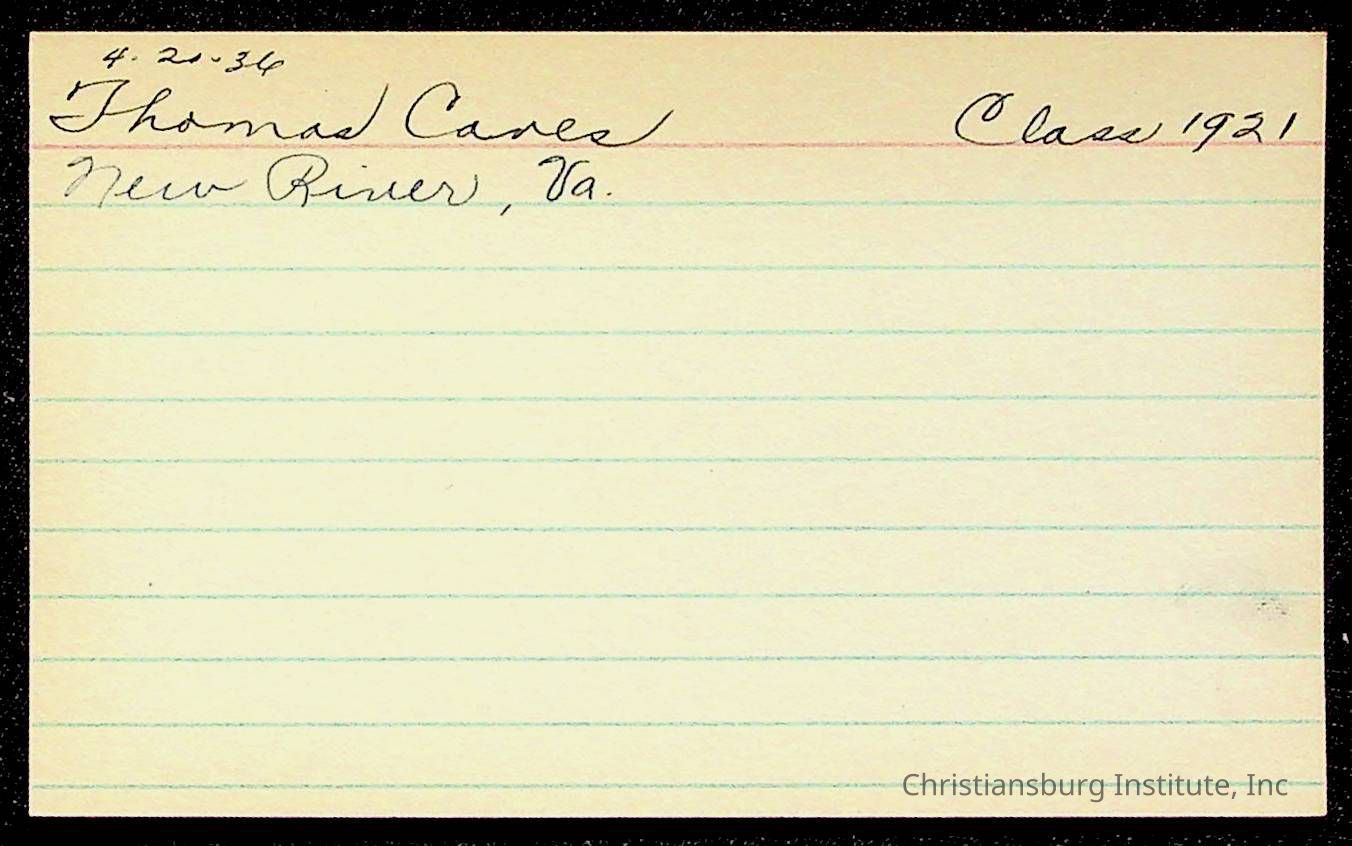 4-20-36
Thomas Caves Class 1921
New River, Va.
Christiansburg Institute, Inc